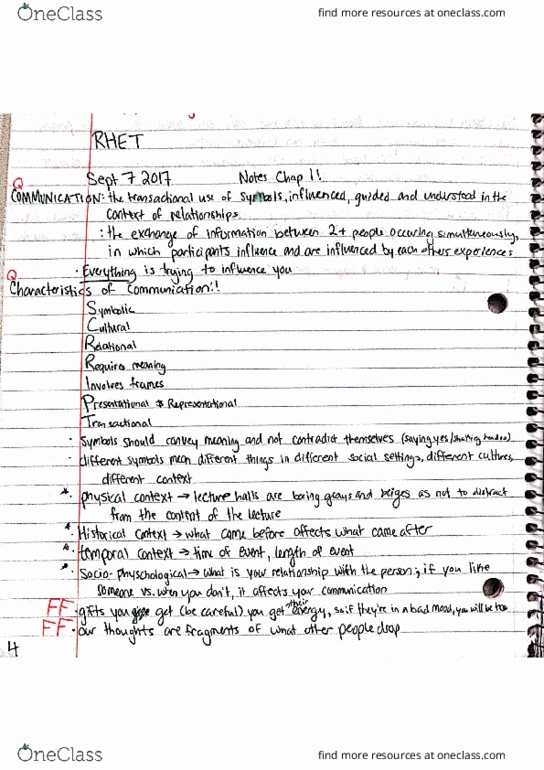 OneClass
find more resources at oneclass.com
RHET
Sept 7 2017 Notes Chap 1!
Q
COMMUNICATION: the transactional use of symbols, influenced, guided and understood in the
context of relationships.
: the exchange of information between 2+ people occuring simultaneously,
in which participants influence and are influenced by each others experiences
· Everything is trying to influence you
Q
Characteristics of Communication!!
Symbolic
Cultural
Relational
Requires meaning
Involves frames
Presentational & Representational
Transactional
· symbols should convey meaning and not contradict themselves (saying yes/shaking head no)
· different symbols mean different things in different social settings, different cultures,
different context
* physical context → lecture halls are boring grays and beiges as not to distract
from the content of the lecture
* Historical context → what came before affects what came after
* temporal context → time of event, length of event
* Socio-physchological → what is your relationship with the person; if you like
someone vs. when you don't, it affects your communication
FF · gifts you get (be careful) you get their energy, so if they're in a bad mood, you will be too
FF · our thoughts are fragments of what other people drop
4
OneClass
find more resources at oneclass.com